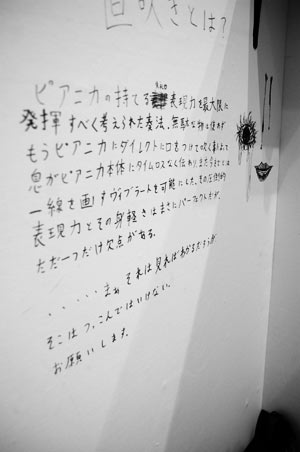 直吹きとは?
ピアニカの持てる表現力を最大限に
発揮すべく考えられた奏法。無駄な物は使わず
もうピアニカにダイレクトに口をつけての吹く事により
息がピアニカ本体にタイムロスなく伝わり、また今までとは
一線を画すヴィブラートを可能にした。その圧倒的
表現力とその身軽さはまさにパーフェクトだが、
ただ一つだけ欠点がある。
・・・・・まぁ それは見ればわかるだろうが
そこはつっこんではいけない。
お願いします。